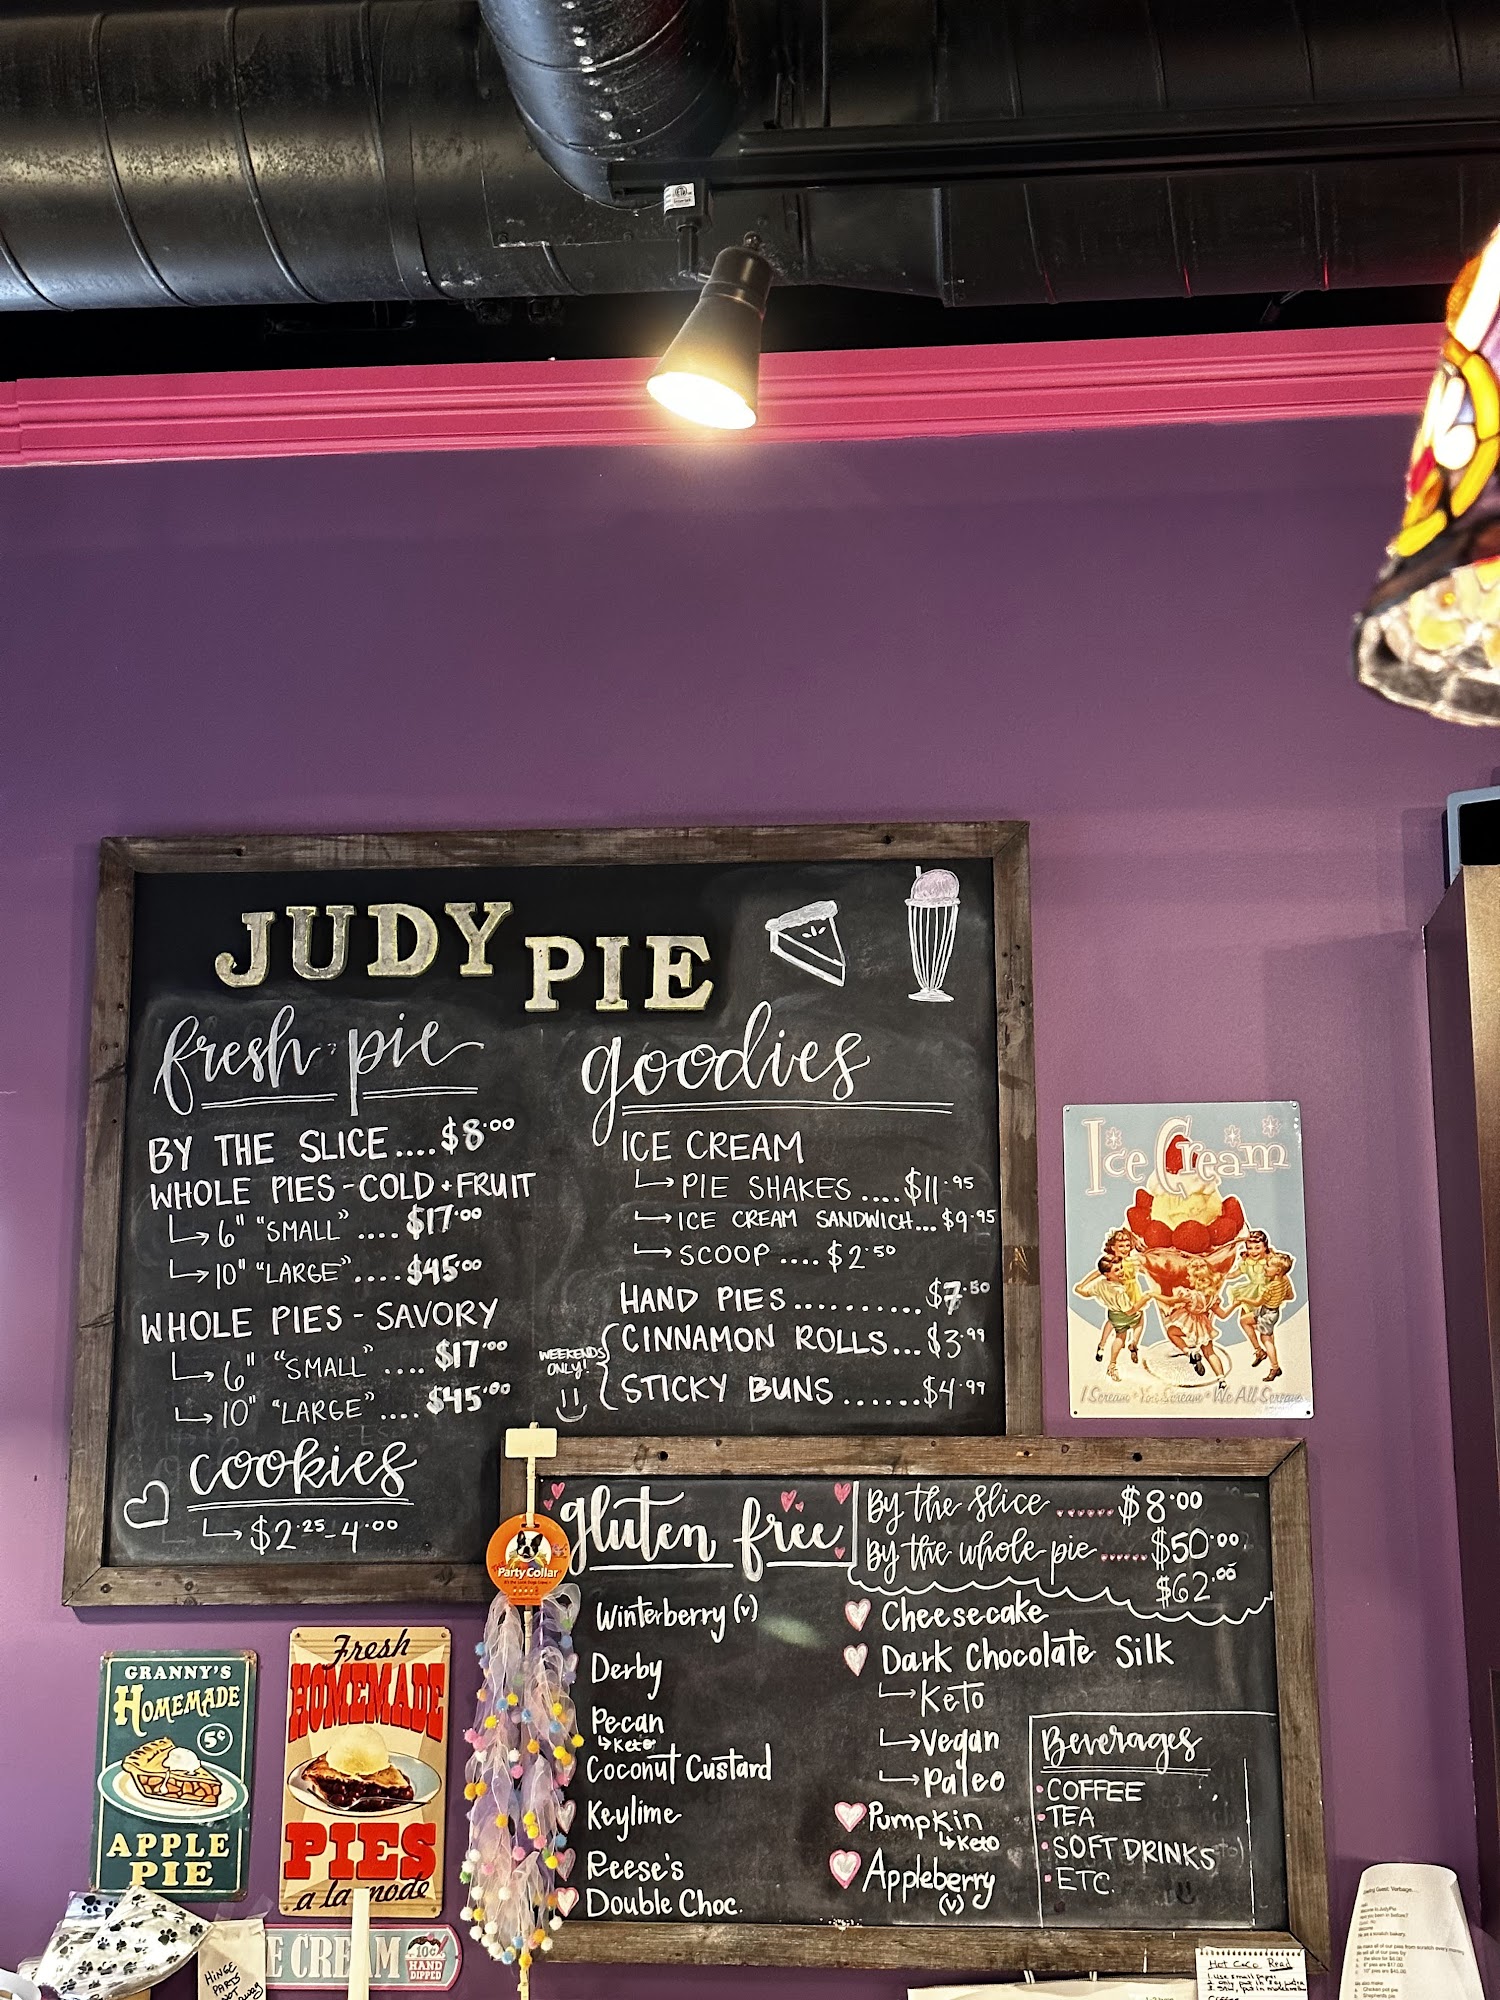 JUDY PIE
fresh pie
BY THE SLICE....$8.00
WHOLE PIES-COLD+FRUIT
↳ 6" "SMALL" ....$17.00
↳ 10" "LARGE"....$45.00
WHOLE PIES - SAVORY
↳ 6" "SMALL" ....$17.00
↳ 10" "LARGE" ....$45.00
cookies
↳ $2.25-4.00
goodies
ICE CREAM
↳ PIE SHAKES ....$11.95
↳ ICE CREAM SANDWICH...$9.95
↳ SCOOP ....$2.50
HAND PIES..........$7.50
WEEKENDS
ONLY!
CINNAMON ROLLS...$3.99
STICKY BUNS ......$4.99
Ice Cream
I Scream • You Scream • We All Scream
gluten free
By the slice ......$8.00
By the whole pie.....$50.00
$62.00
Winterberry (v)
Derby
Pecan
↳ Keto
Coconut Custard
Keylime
Reese's
Double Choc.
Cheesecake
Dark Chocolate Silk
↳ Keto
↳ Vegan
↳ Paleo
Pumpkin
↳ Keto
Appleberry
(v)
Beverages
• COFFEE
• TEA
• SOFT DRINKS
• ETC.
Party Collar
GRANNY'S
HOMEMADE
5¢
APPLE
PIE
Fresh
HOMEMADE
PIES
a la mode
E CREAM
10¢
HAND
DIPPED
HINGE
PARTS
Hot CoCo Read